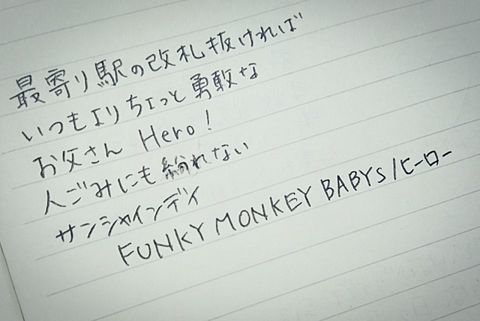 最寄り駅の改札抜ければ
いつもよりちょっと勇敢な
お父さん Hero!
人ごみにも紛れない
サンシャインデイ
FUNKY MONKEY BABYS/ヒーロー